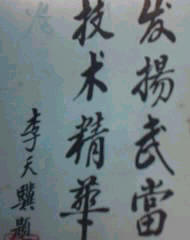 发揚武當
技术精華
李天驥題